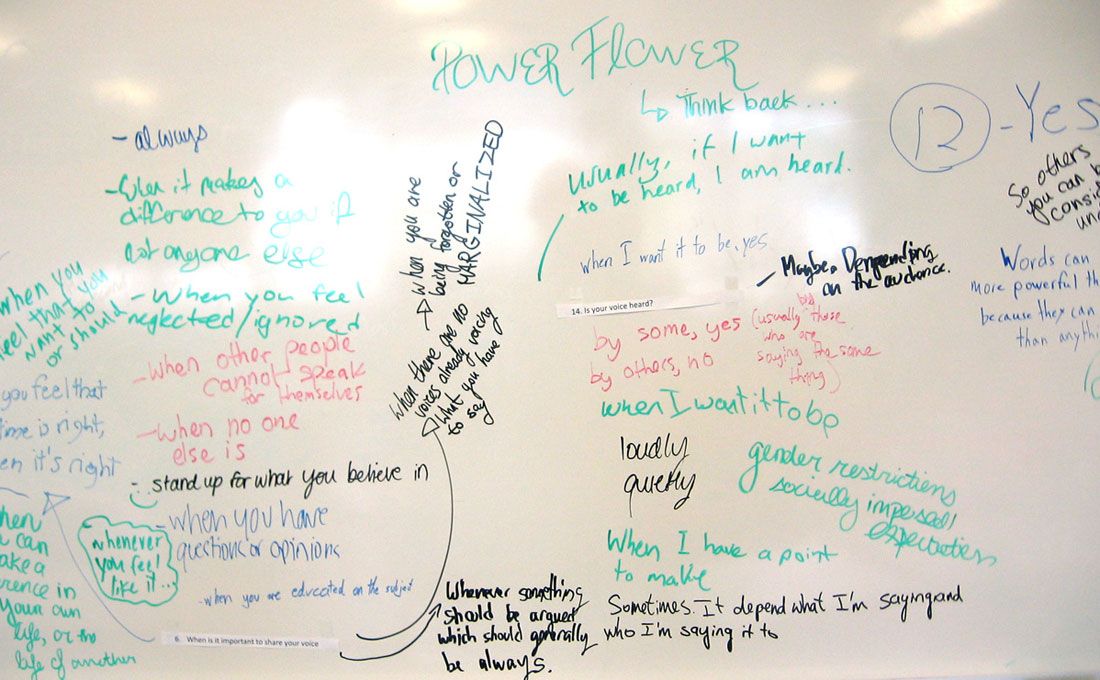 POWER FLOWER
↳ Think back...
- always
- When it makes a
difference to you if
not anyone else
when you
feel that you
want to
or should
- When you feel
neglected/ignored
- when other people
cannot speak
for themselves
- when no one
else is
you feel that
time is right,
en it's right
- stand up for what you believe in
- when you have
questions or opinions
whenever
you feel
like it...
- when you are educated on the subject
hen
can
ake a
rence in
your own
life, or the
life of another
6. When is it important to share your voice
when you are
being forgotten or
MARGINALIZED
When there are no
voices already voicing
what you have
to say
Whenever something
should be argued
which should generally
be always.
usually, if I want
to be heard, I am heard.
when I want it to be, yes
14. Is your voice heard?
- Maybe. Depending
on the audience.
by some, yes (usually those
who are
saying the same
thing)
by others, no
when I want it to be
loudly
quietly
gender restrictions
socially imposed
expectation
When I have a point
to make
Sometimes. It depend what I'm saying and
who I'm saying it to
12 - Yes
So others
you can b
consid
un
Words can
more powerful th
because they can
than anythi